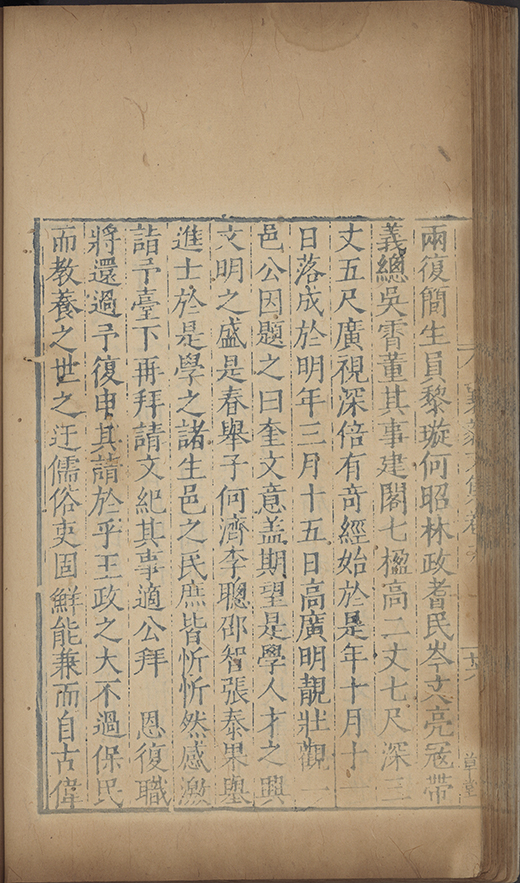 兩復簡生員黎璇何昭林政耆民岑文亮冠帶
義總吳霄董其事建閣七楹高二丈七尺深三
丈五尺廣視深倍有奇經始於是年十月十一
日落成於明年三月十五日高廣明靚壯觀一
邑公因題之曰奎文意盖期望是學人才之興
文明之盛是春舉子何濟李聰邵智張泰果舉
進士於是學之諸生邑之民庶皆忻忻然感激
詣予臺下再拜請文紀其事適公拜 恩復職
將還過予復申其請於乎王政之大不過保民
而教養之世之迂儒俗吏固鮮能兼而自古偉